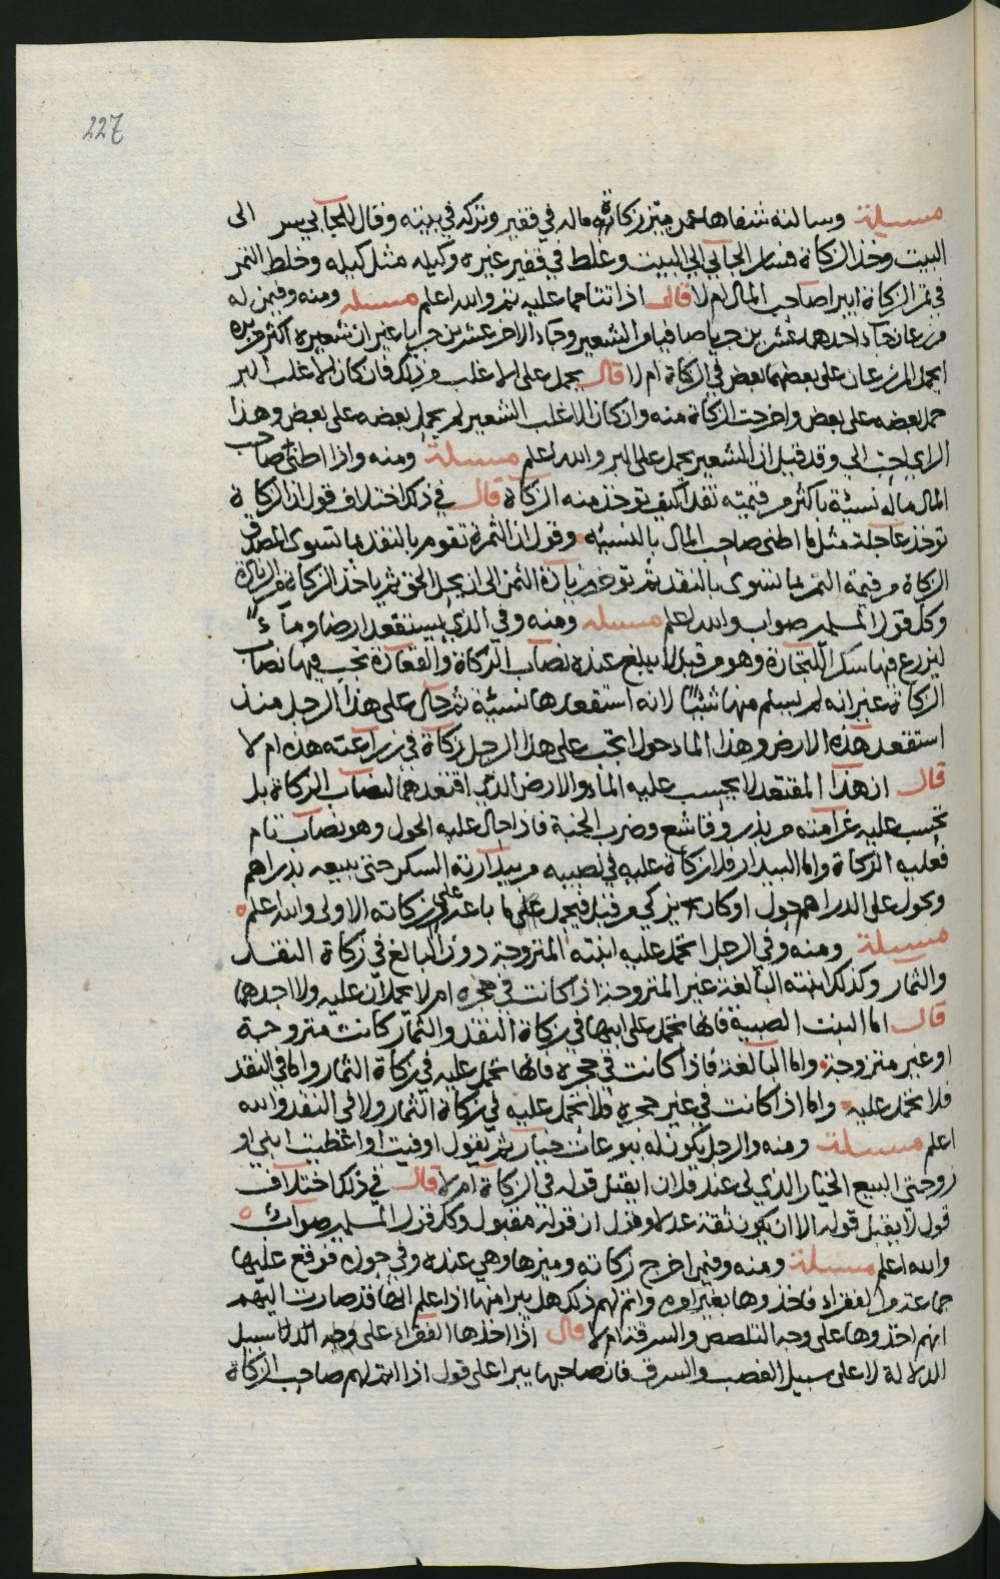 227
مسئلة وسالته شفاها عمن ميز زكاة ماله في قفير وتركه في بيته وقال للجابي سر الى
البيت وخذ الزكاة فسار الجابي الى البيت وغلط في قفير غيره وكيله مثل كيله وخلط التمر
في تمر الزكاة ايبرا صاحب المال ام لا قال اذا تتامما عليه تم والله اعلم مسئله ومنه وفيمن له
زرعان جآء احدهما عشرين جريا صافيا من الشعير وجاء الاخر عشرين جريا غير ان شعيره اكثر من بره
ايحمل الزرعان على بعضهما بعض في الزكاة ام لا قال يحمل على الاغلب من ذلك فان كان الاغلب البر
حمل بعضه على بعض واخرجت الزكاة منه وان كان الاغلب الشعير لم يحمل بعضه على بعض وهذا
الراي احب الي وقد قيل ان الشعير يحمل على البر والله اعلم مسئلة ومنه واذا اطنى صاحب
المال ماله نسيئة باكثر من قيمته نقدا كيف توخذ منه الزكاة قال في ذلك اختلاف قول ان الزكاة
توخذ عاجلة مثل ما اطنى صاحب المال بالنسيئه وقول ان الثمرة تقوم بالنقد ما تسوى المصدق
الزكاة من قيمة التمر بما تسوى بالنقد ثم توخر زيادة الثمن الى ان يحل الحق ثم ياخذ الزكاة من الزيادة
وكل قول المسلمين صواب والله اعلم مسئله ومنه وفي الذي يستقعد ارضا ومآء
ليزرع فيها سكرا للتجارة وهو من قبل لا يبلغ عنده نصاب الزكاة والقعادة تجب فيها نصاب
الزكاة غير انه لم يسلم منها شيئا لانه استقعدها نسيئة ثم حال على هذا الرجل منذ
استقعد هذه الارض وهذا الماء حول اتجب على هذا الرجل زكاة في زراعته هذه ام لا
قال ان هذا المقتعد لا يحسب عليه الماء والارض الذي اقتعدهما لنصاب الزكاة بل
تحسب عليه غرامته من بذر وقاشع وضرب الجنة فاذا حال عليه الحول وهو نصاب تام
فعليه الزكاة واما البيدار فلا زكاة عليه في نصيبه من بيدارته السكر حتى يبيعه بدراهم
وتحول على الدراهم حول او كان ممن يزكي من قبل فيحمل على ما باعه على زكاته الاولى والله اعلم
مسيلة ومنه وفي الرجل اتحمل عليه ابنته المتزوجة دون البالغ في زكاة النقد
والثمار وكذلك ابنته البالغة غير المتزوجة اذا كانت في حجره ام لا يحملان عليه ولا احدهما
قال اما البنت الصبية فانها تحمل على ابيها في زكاة النقد والثمار كانت متزوجة
او غير متزوجة واما البالغة فاذا كانت في حجره فانها تحمل عليه في زكاة الثمار واما في النقد
فلا تحمل عليه واما اذا كانت في غير حجره فلا تحمل عليه في زكاة الثمار ولا في النقد والله
اعلم مسئلة ومنه والرجل يكون له بيوعات خيار ثم يقول اوفيت او اعطيت ابني او
زوجتي البيع الخيار الذي لي عند فلان ايقبل قوله في الزكاة ام لا قال في ذلك اختلاف
قول لا يقبل قوله الا ان يكون ثقة عدلا وقول ان قوله مقبول وكل قول المسلمين صواب
والله اعلم مسئلة ومنه وفيمن اخرج زكاته وميزها وهي عنده وفي حوزه فوقع عليها
جماعة من الفقراء فاخذوها بغير امره واتم لهم ذلك هل يبرا منها اذا علم انها قد صارت اليهم
انهم اخذوها على وجه التلصص والسرقة ام لا قال اذا اخذها الفقراء على وجه سبيل
الدلالة لا على سبيل الغصب والسرق فان صاحبها يبرا على قول اذا اتم لهم صاحب الزكاة